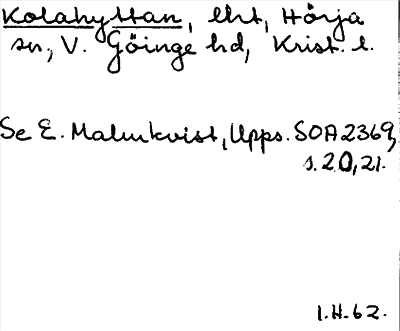 Kolahyttan, lht, Hörja
sn, V. Göinge hd, Krist. l.
Se E. Malmkvist, Upps. SOA 2369,
s. 20, 21.
I.H. 62.